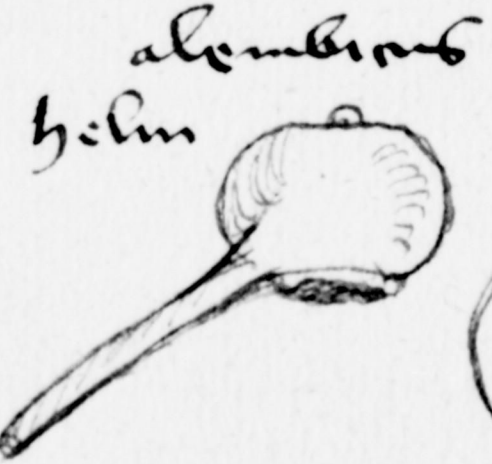 alembicus
helm